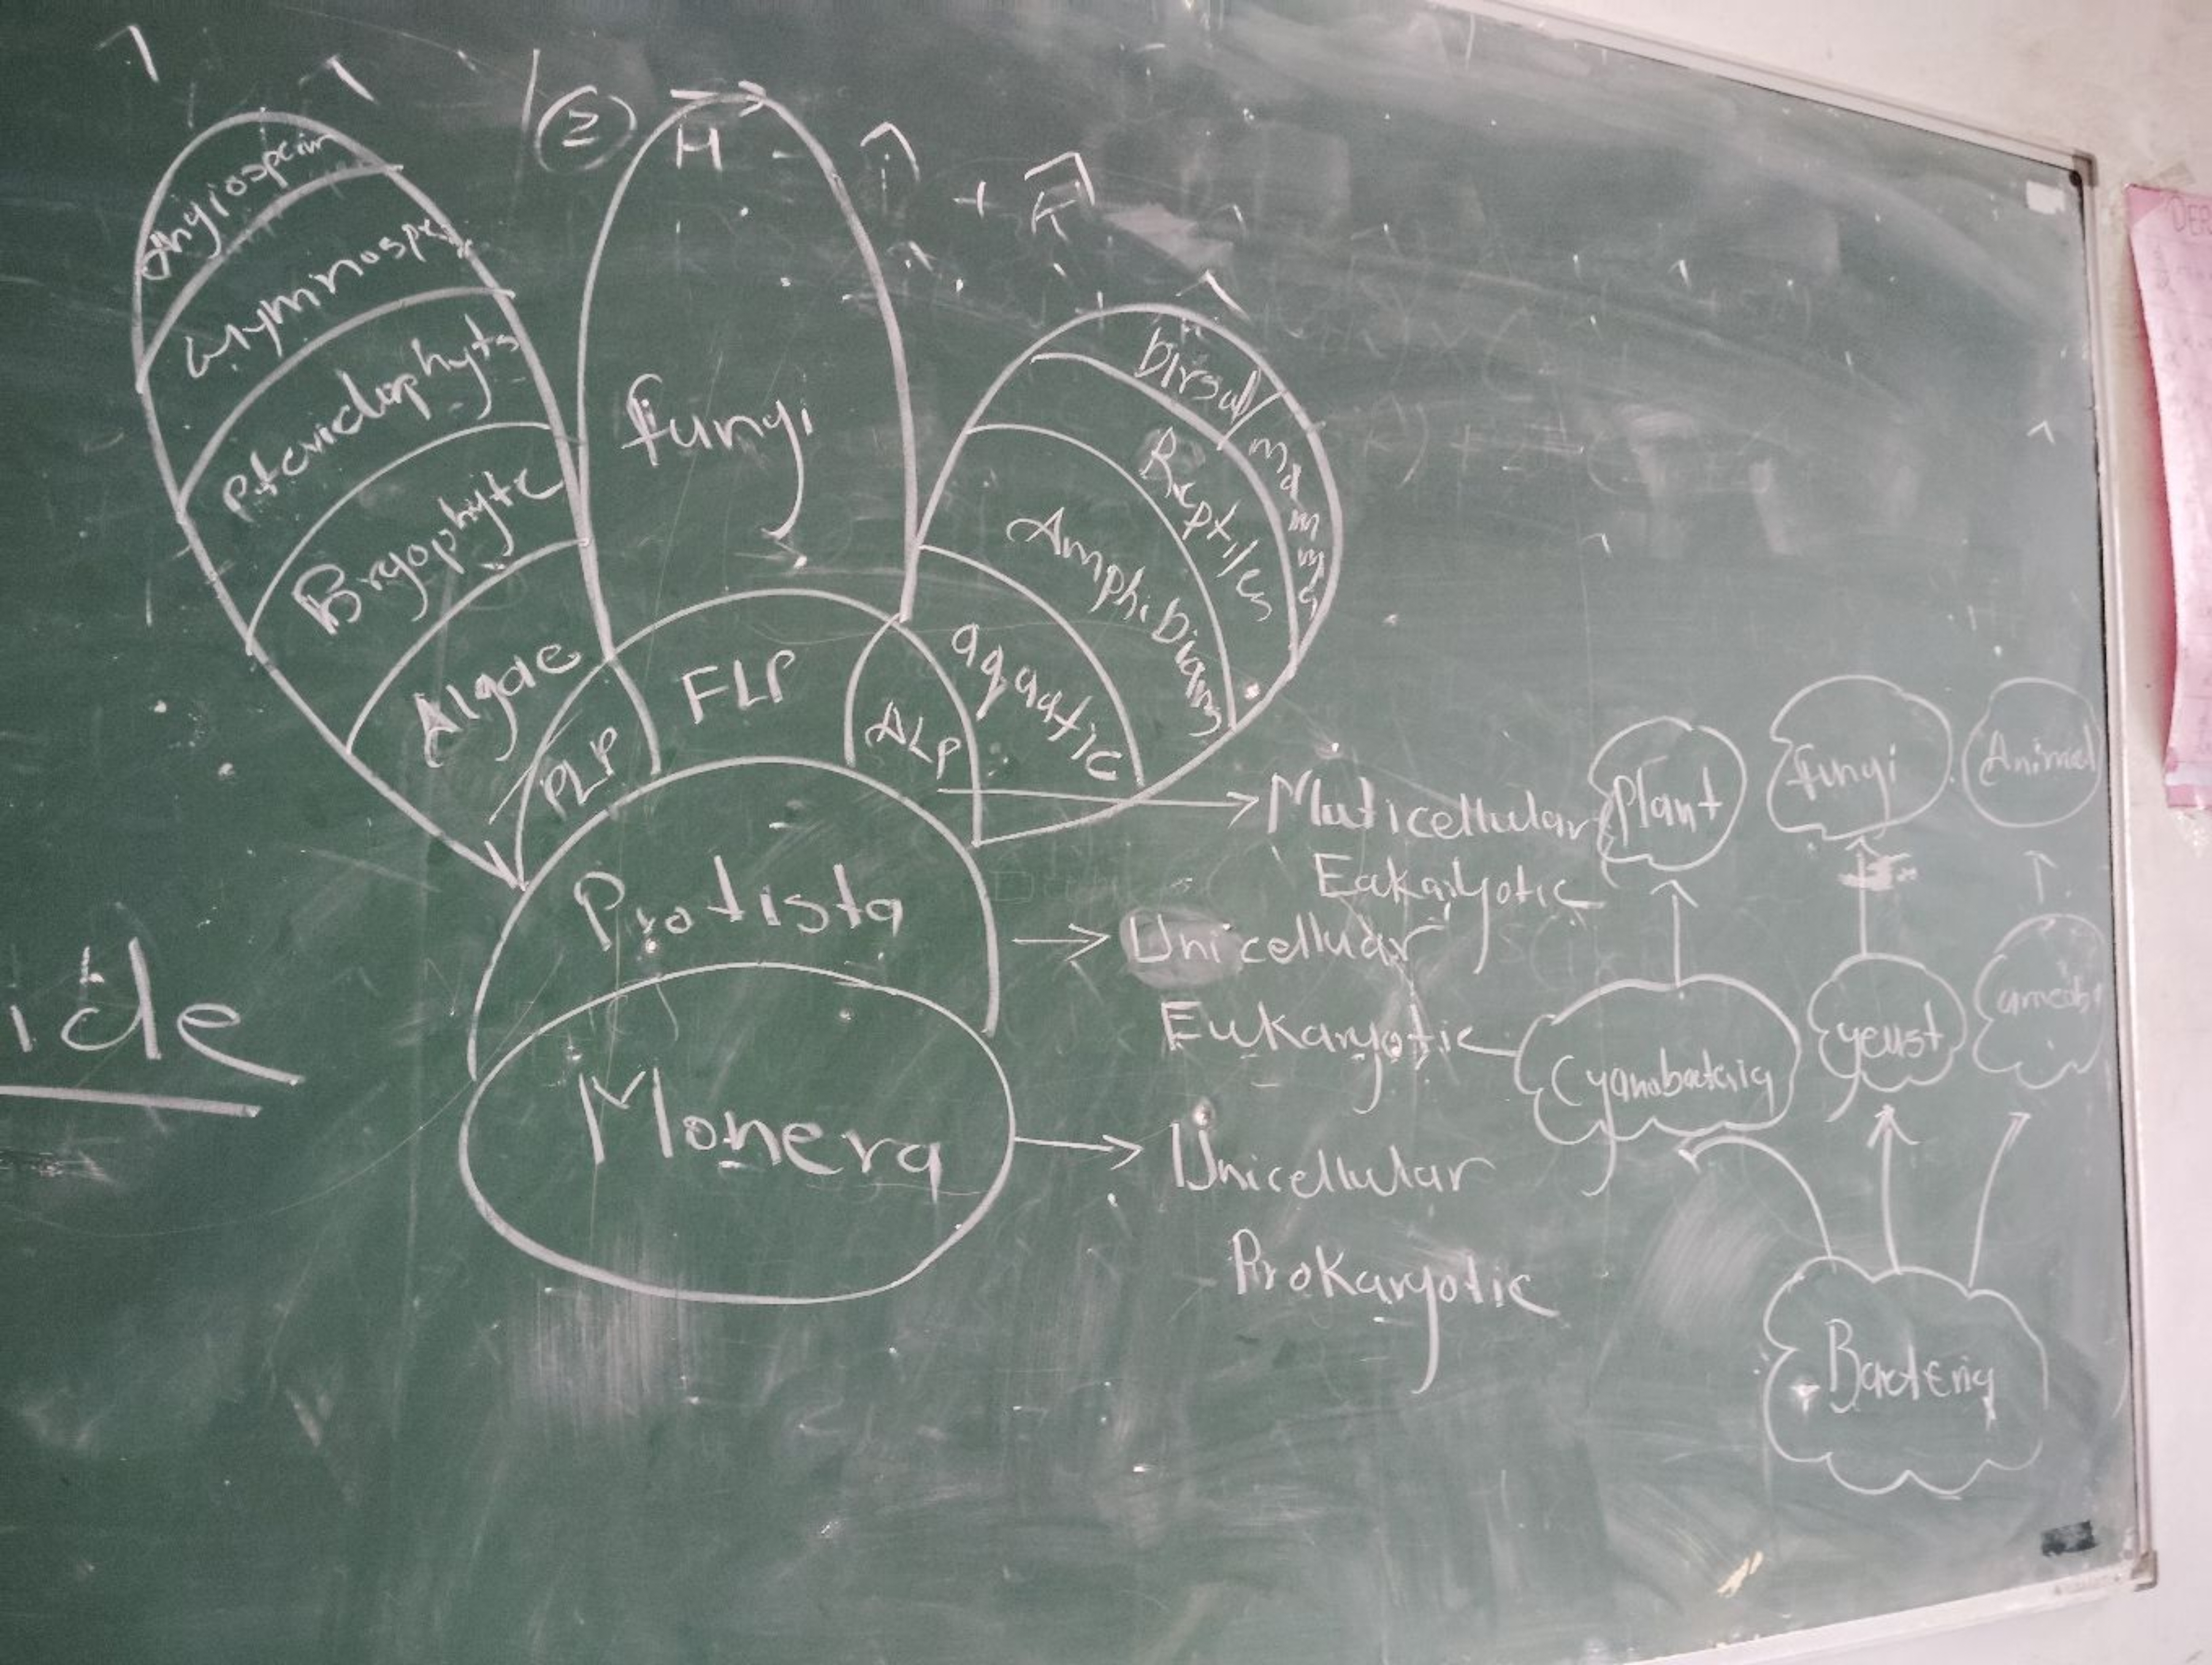 2
H
Angiosperm
Gymnospe
Pteridophyts
Bryophyte
Algae
PLP
fungi
FLP
ALP
birsd
mamma
Reptiles
Amphibians
aquatic
Protista
Monera
ide
Muticellular
Eukaryotic
Unicellular
Eukaryotic
Unicellular
Prokaryotic
Plant
fungi
Animal
Cyanobacteria
yeust
amoeba
Bacteria
DER